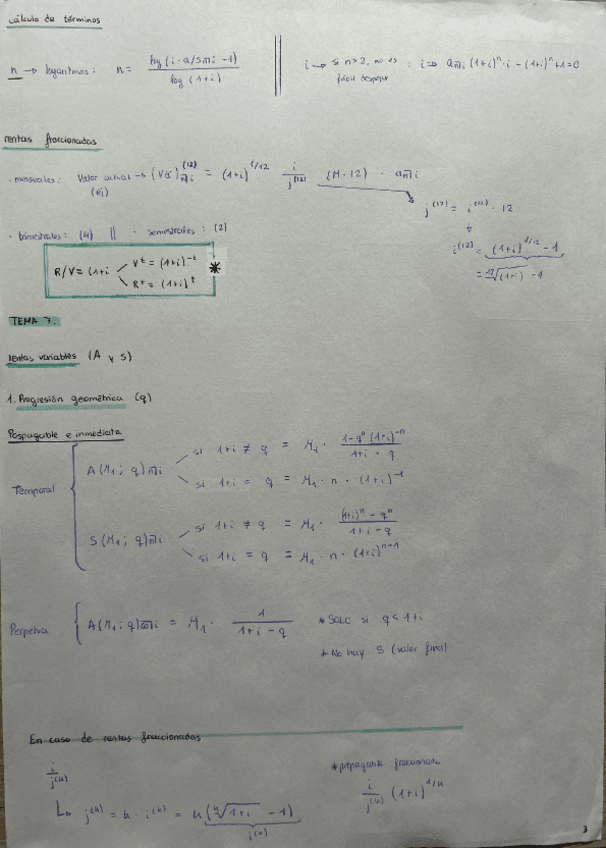 cálculo de términos
n → logaritmos: n = log (i · a/sn̅|i - 1) / log (1+i)
i → si n>2, no es fácil despejar : i ⇒ an̅|i (1+i)^n · i - (1+i)^n + 1 = 0
rentas fraccionadas
· mensuales: Valor actual → (Vä)^(12) n̅|i = (1+i)^1/12 i/j^(12) (M · 12) · an̅|i
j^(12) = i^(12) · 12
· trimestrales: (4) || · semestrales: (2)
i^(12) = (1+i)^1/12 - 1
= 12√(1+i) - 1
R/V = (1+i
V^t = (1+i)^-t
R^t = (1+i)^t
*
TEMA 7.
rentas variables (A y S)
1. Progresión geométrica (q)
Pospagable e inmediata
Temporal
A(M1; q)n̅|i
si 1+i ≠ q = M1 · 1-q^n (1+i)^-n / 1+i - q
si 1+i = q = M1 · n · (1+i)^-1
S(M1; q)n̅|i
si 1+i ≠ q = M1 · (1+i)^n - q^n / 1+i - q
si 1+i = q = M1 · n · (1+i)^n-1
Perpetua
A(M1; q)∞̅|i = M1 · 1 / 1+i - q
* Solo si q < 1+i
* No hay S (valor final
En caso de rentas fraccionadas
i/j^(k)
* prepagable fraccionada
i/j^(k) (1+i)^1/k
↳ j^(k) = k · i^(k) = k (k√1+i - 1)
i^(k)
3